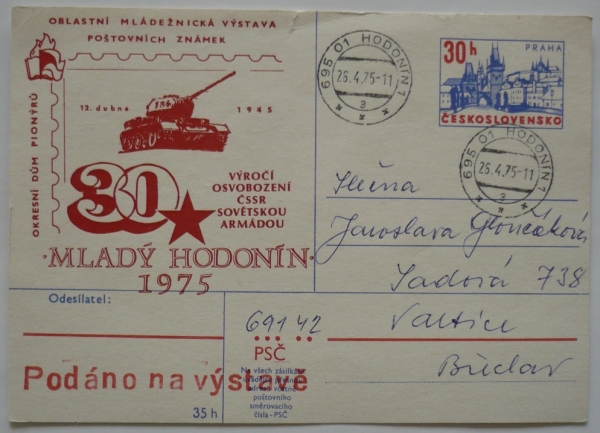 OBLASTNÍ MLÁDEŽNICKÁ VÝSTAVA
POŠTOVNÍCH ZNÁMEK
OKRESNÍ DŮM PIONÝRŮ
12. dubna 1945
30
VÝROČÍ
OSVOBOZENÍ
ČSSR
SOVĚTSKOU
ARMÁDOU
·MLADÝ HODONÍN·
1975
695 01 HODONÍN 1
26.4.75-11
a
30h
PRAHA
ČESKOSLOVENSKO
695 01 HODONÍN 1
26.4.75-11
a
Jaroslava
Sadová 738
Valtice
Břeclav
Odesílatel:
691 42
PSČ
Na všech zásilkách
uvádějte přesnou
adresu včetně
poštovního
směrovacího
čísla - PSČ
Podáno na výstavě
35 h